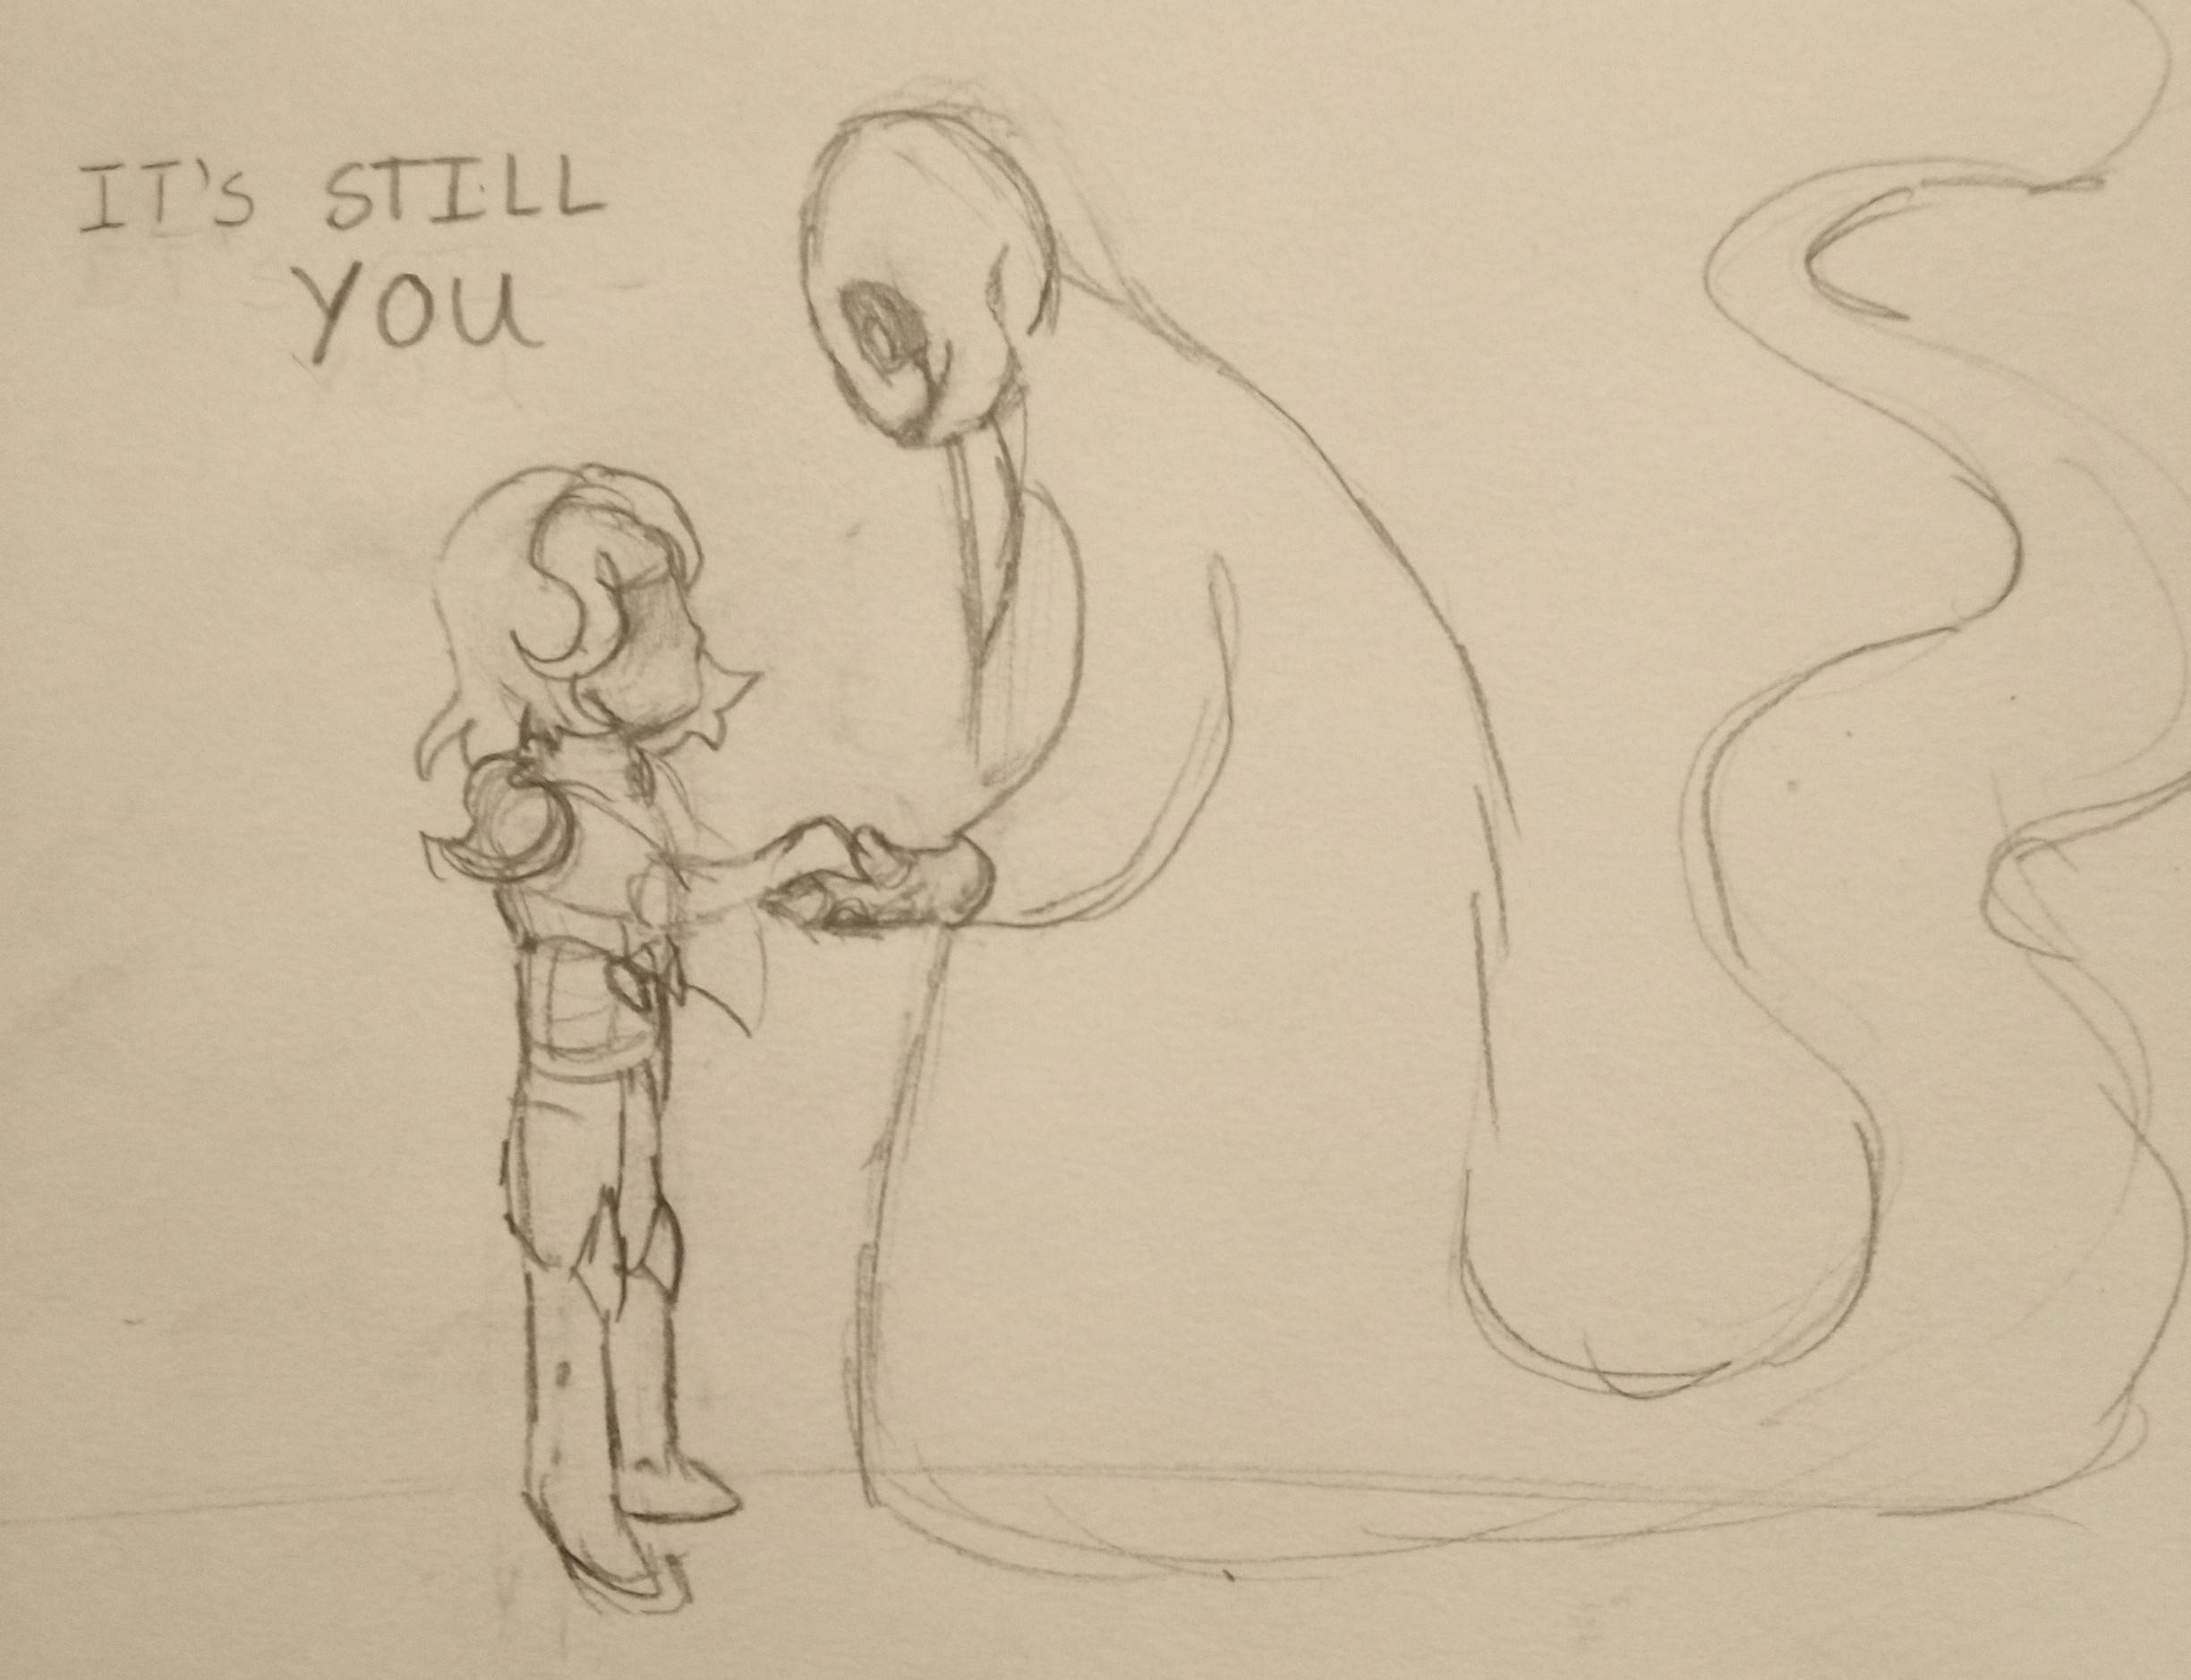 IT'S STILL
YOU